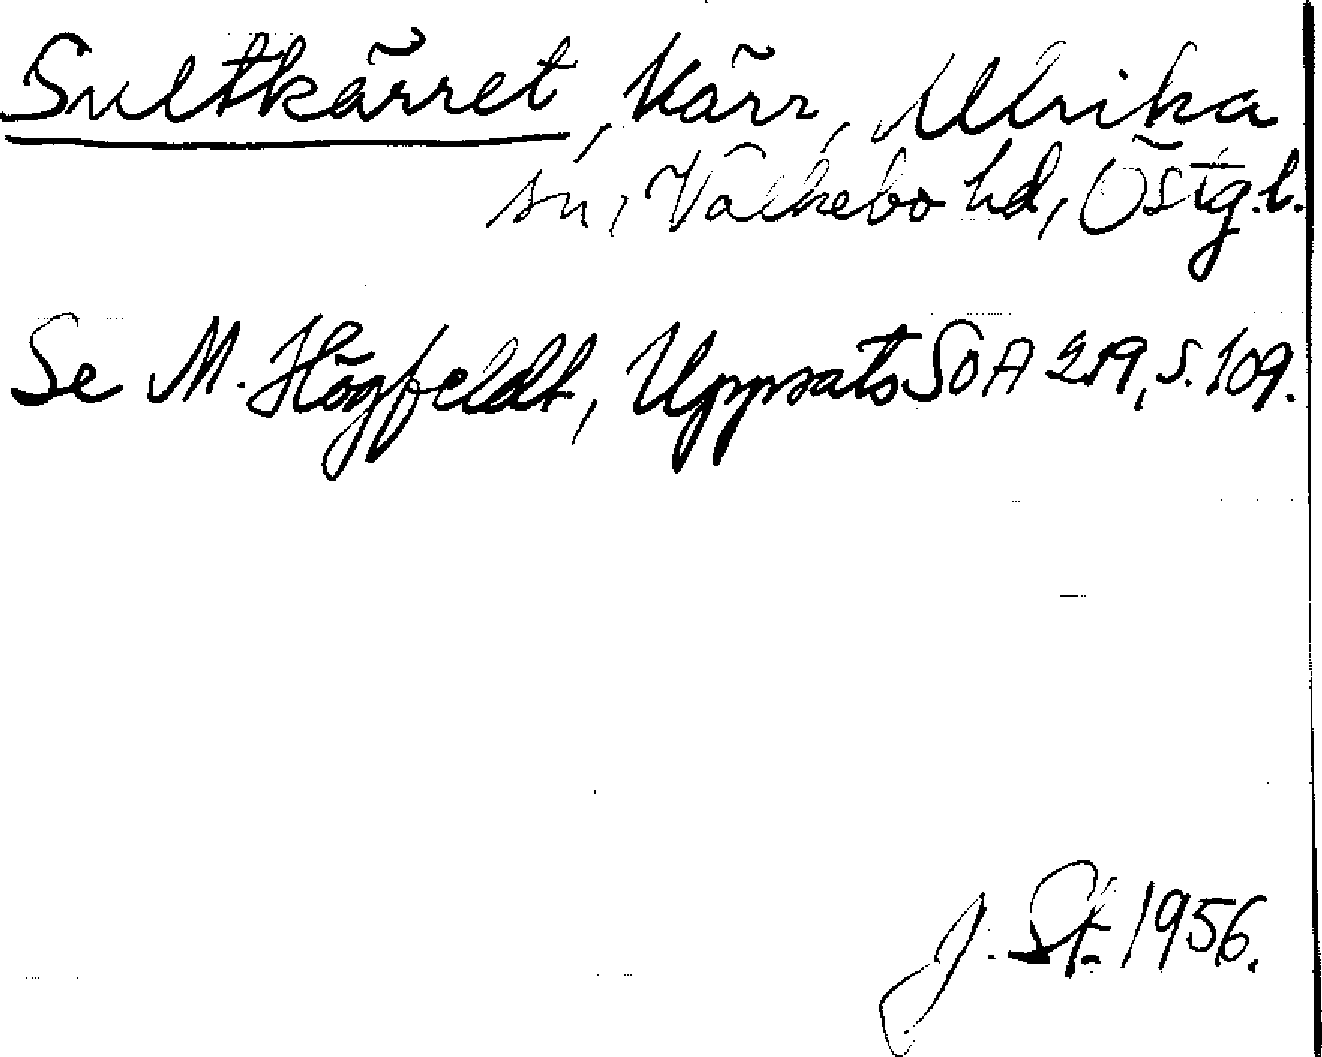 Sultkärret, Kärr, Ulrika
sn, Valkebo hd, Östg.l.
Se M. Högfeldt, Uppsats SOA 219, s. 109.
J. St. 1956.